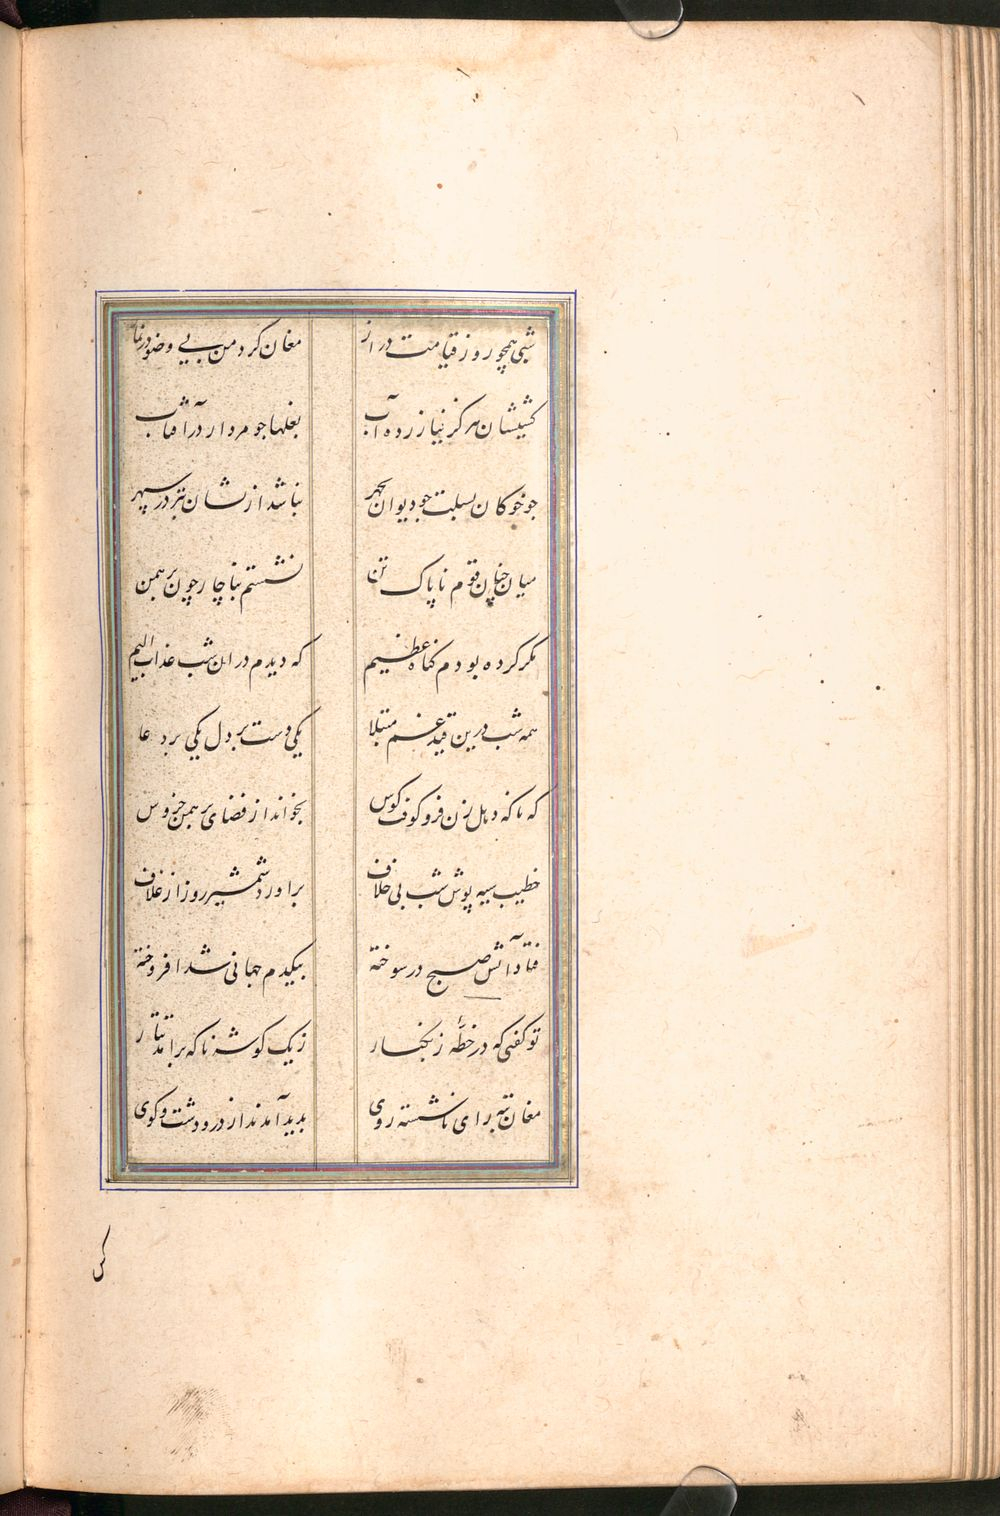 شبی همچو روز قیامت دراز مغان کرد من بی وضو در نماز
کشیشان هرکز نیازرده آب بغلها جو مردار در آفتاب
جو خوکان بسبلت جو دیوان بچهر نباشد از نشان بتر در سپهر
میان چنان قوم ناپاک تن نشستم بناچار چون برهمن
مکر کرده بودم کناه عظیم که دیدم در ان شب عذاب الیم
همه شب درین قید غم مبتلا یکی دست بر دل یکی بر دعا
که ناکه دهل زن فرو کوفت کوس بخواند از قضای برهمن خروس
خطیب سیه پوش شب بی خلاف براورد شمشیر روز از غلاف
فتاد آتش صبح در سوخته بیکدم جهانی شد افروخته
تو کفتی که در خطهٔ زنکبار ز یک کوشه ناکه برامد تتار
مغان تبه رای ناشسته روی بدید آمدند از در و دشت و کوی
کس